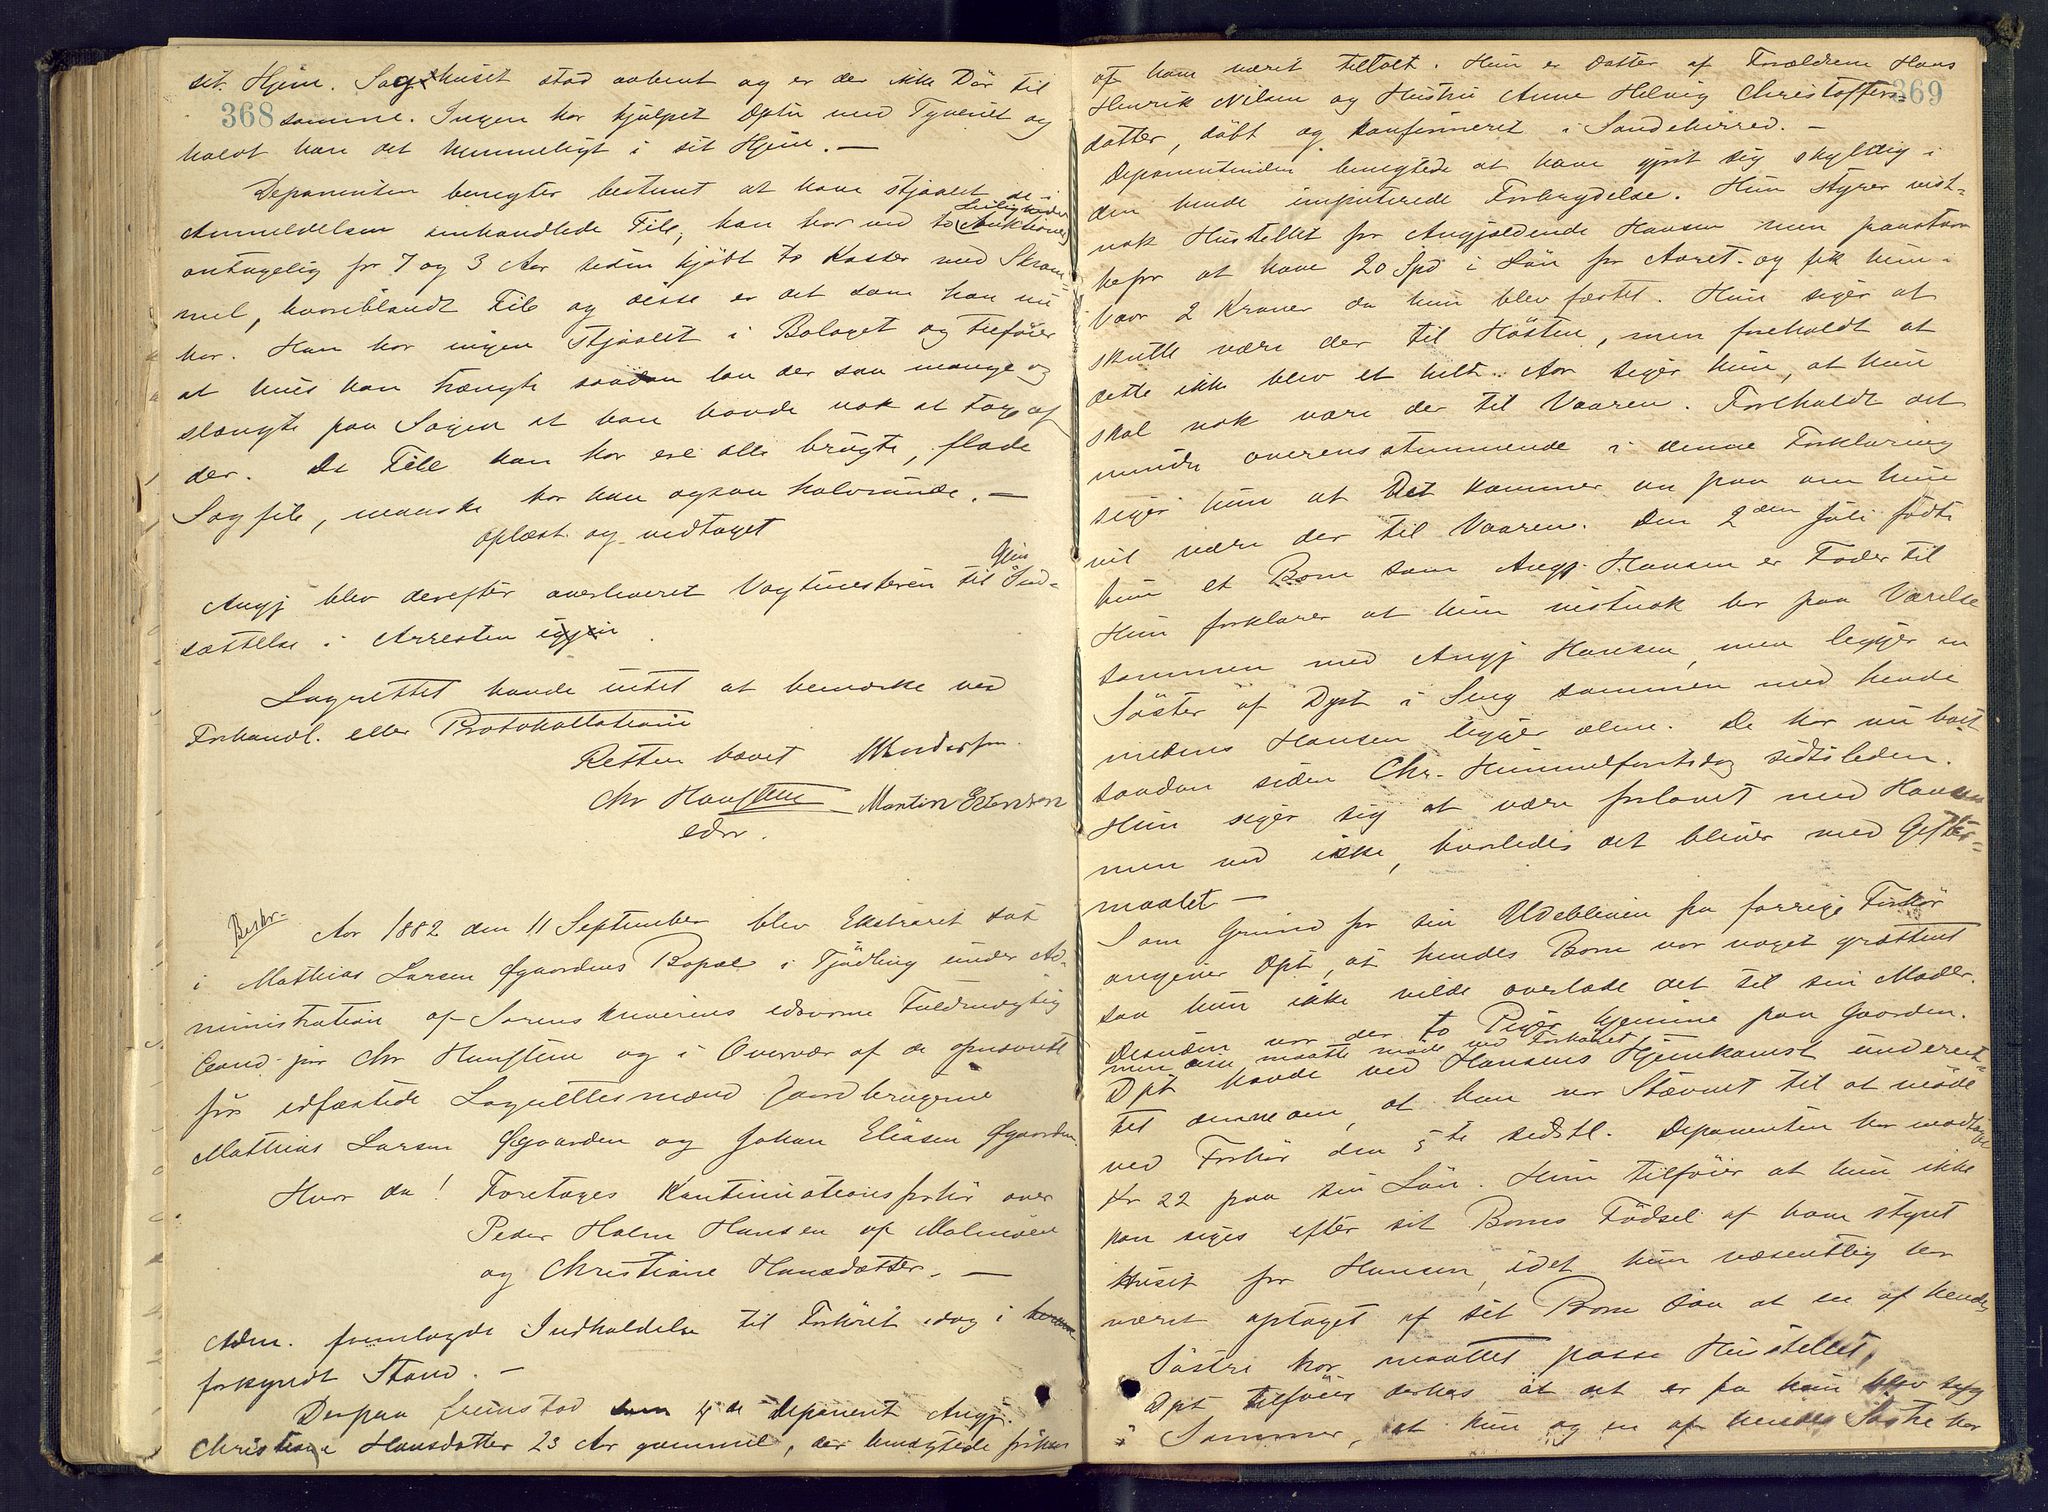 368
sit Hjem. Saghuset stod aabent og er der ikke Dør til
samme. Ingen har hjulpet Dptn med Tyveriet og
holdt han det hemmeligt i sit Hjem. —
Deponenten benegter bestemt at have stjaalet de i
Anmeldelsen omhandlede File, han har ved to (Auktioner) Leiligheder
antagelig for 7 og 3 Aar siden kjøbt to Kasser med Skram=
mel, hvoriblandt File og disse er det som han nu
har. Han har ingen stjaalet i Bolaget og tilføier
at hvis han trængte saadan laa der saa mange og
slængte paa Sagen at han havde nok at tage af
der. De File han har ere alle brugte, flade
Sagfile, maaske har han ogsaa halvrunde. —
oplæst og vedtaget
Angj blev derefter overleveret Vagtmesteren til Gjen Ind-
sættelse i Arresten igjen.
Lagrettet havde intet at bemærke ved
Forhandl. eller Protokollationen
Retten hævet
Chr Hanssteen Martin Evensen
edsv.
Beskr.
Aar 1882 den 11 September blev Ekstraret sat
i Mathias Larsen Øgaardens Bopæl i Tjødling under Ad-
ministration af Sorenskriverens edsvorne Fuldmægtig
Cand jur Chr Hanssteen og i Overvær af de opnævnte
før edfæstede Lagrettesmænd Gaardbrugerne
Mathias Larsen Øgaarden og Johan Eliasen Øgaarden.
Hvor da! Foretoges Kontinuationsforhør over
Peder Holm Hansen af Malmøen
og Christiane Hansdatter. —
Adm. fremlagde Indkaldelse til Forhøret idag i
forkyndt Stand. —
Derpaa fremstod som 4de deponent Angj.
Christiane Hansdatter 23 Aar gammel, der benægtede før
369
at have været tiltalt. Hun er Datter af Forældrene Hans
Henrik Nilsen og Hustru Anne Helvig Christoffers=
datter, døbt og konfirmeret i Sandeherred. —
Deponentinden benegtede at have gjort sig skyldig i
den hende imputerede Forbrydelse. Hun styrer vist=
nok Hustellet for Angjældende Hansen men paastaar
herfor at have 20 Spd i Løn for Aaret og fik hun i
Vaar 2 Kroner da hun blev fæstet. Hun siger at
skulle være der til Høsten, men foreholdt at
dette ikke blev et helt Aar siger hun, at hun
skal nok være der til Vaaren. Foreholdt det
mindre overensstemmende i denne Forklaring
siger hun at Det kommer an paa om hun
vil være der til Vaaren. Den 2den Juli fødte
hun et Barn som Angj. Hansen er Fader til
Hun forklarer at hun vistnok bor paa Værelse
sammen med Angj Hansen, men ligger en
Søster af Dpt i Seng sammen med hende
medens Hansen ligger alene. De har nu boet
saadan siden Chr. Himmelfartsdag sidstleden.
Hun siger sig at være forlovet med Hansen
men ved ikke, hvorledes det bliver med Gifter=
maalet —
Som Grund for sin Udebliven fra forrige Forhør
angiver Dpt, at hendes Barn var noget grættent
saa hun ikke vilde overlade det til sin Moder.
Desuden var der to Piger hjemme paa Gaarden.
men den maatte møde ved Forhøret
Dpt havde ved Hansens Hjemkomst underret-
tet denne om, at han var Stævnet til at møde
ved Forhør den 5te sidstl. Deponenten har modtaget
Kr 22 paa sin Løn. Hun tilføier at hun ikke
kan siges efter sit Barns Fødsel at have styret
Huset for Hansen, idet hun væsentlig har
været optaget af sit Barn saa at en af hendes
Søstre har maattet passe Hustellet.
Dpt tilføier derhos at det er fra hun blev syg
i Sommer, at hun og en af hendes Søstre har